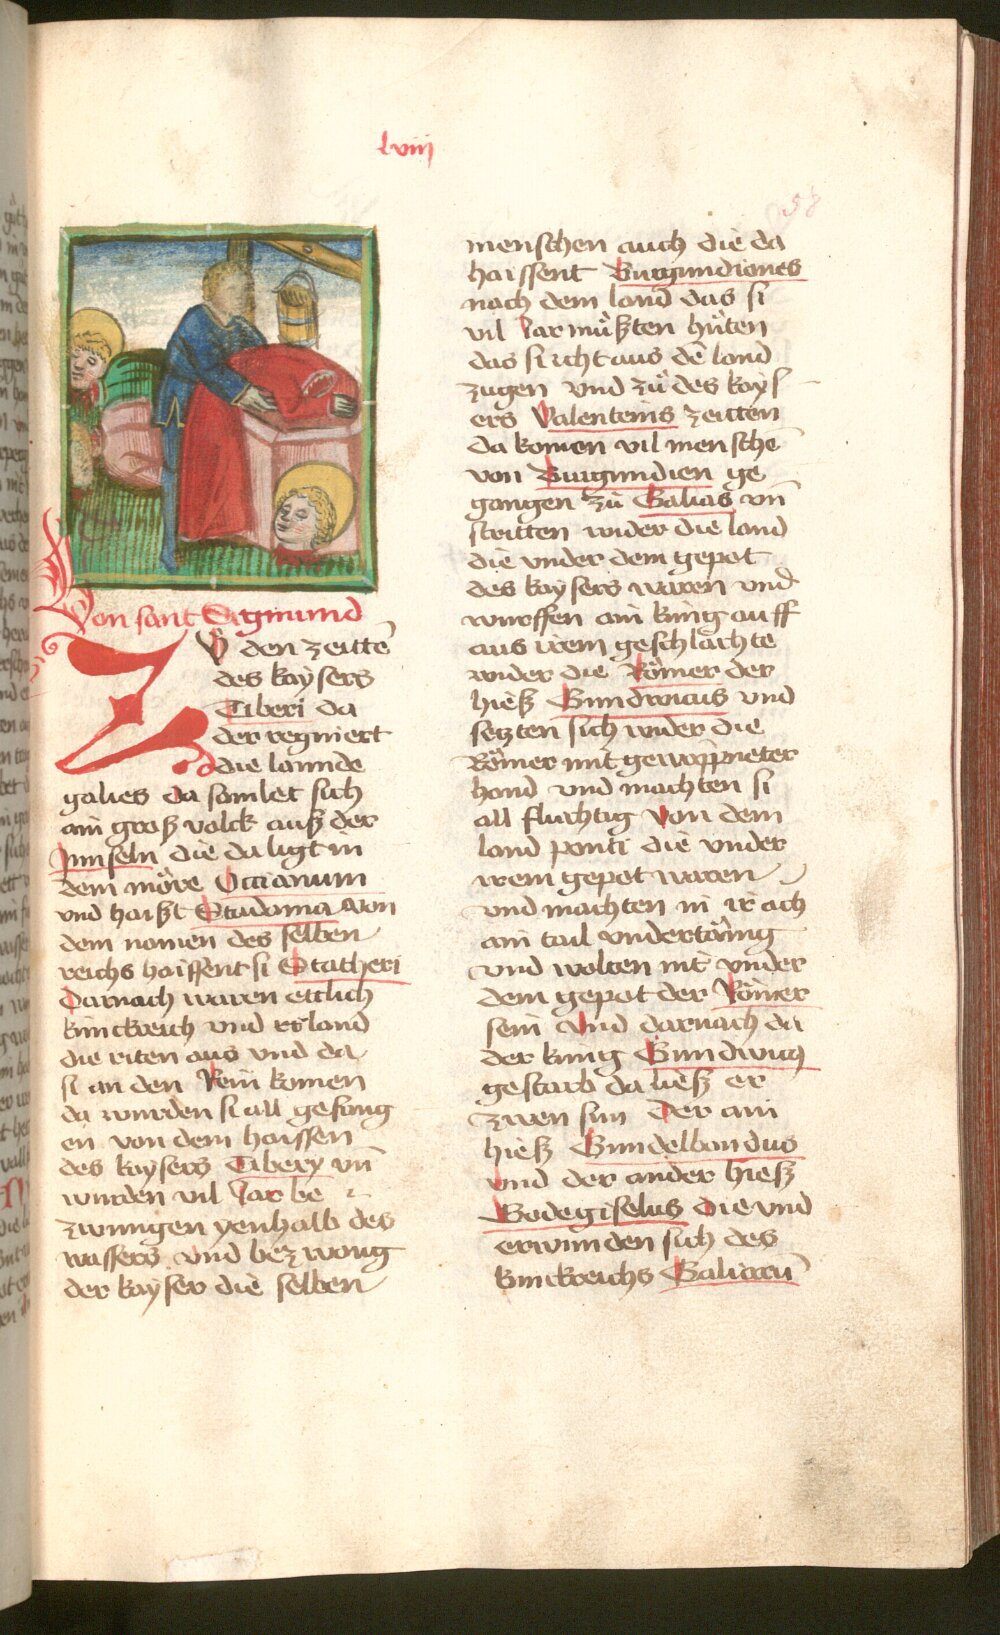 lviij
58
Von sant Sigmund
Zů den zeittē
des kaysers
Tiberi da
der regniert
die lannde
galies da samlet sich
ain groß volck auß der
Jnnseln die da ligt in
dem möre Occianum
vnd haißt Studoma von
dem namen des selben
reichs haissent si Statheri
Darnach waren ettlich
künckreich vnd irland
die riten aus vnd da
si an den Rein komen
da wurden si all gefang
en von dem haissen
des kaysers Tibery vñ
wurden vil Jar be
zwungen yenhalb des
wassers vnd bezwang
der kayser die selben
menschen auch die da
haissent Burgundiones
nach dem land das si
vil Jar můßten hüten
das si icht aus dē land
zugen vnd zů des kays
ers Valenteins zeitten
da komen vil menschē
von Burgundien ge
gangen zů Galias vñ
stritten wider die land
die vnder dem gepot
des kaysers waren vnd
wurffen ain king auff
aus irem geschlächte
wider die Römer der
hieß Gundwicus vnd
setzten sich wider die
Römer mit gewappneter
hand vnd machten si
all fluchtig von dem
land ponti die vnder
irem gepot waren
vnd machten in ir ach
ain tail vndertänig
vnd wolten nit vnder
dem gepot der Römer
sein vnd darnach da
der king Gundwicus
gestarb da ließ er
zwen sün Der ain
hieß Gundelbandus
vnd der ander hieß
Godegiselus Die vnd
erwunden sich des
kinckreichs Galiarū